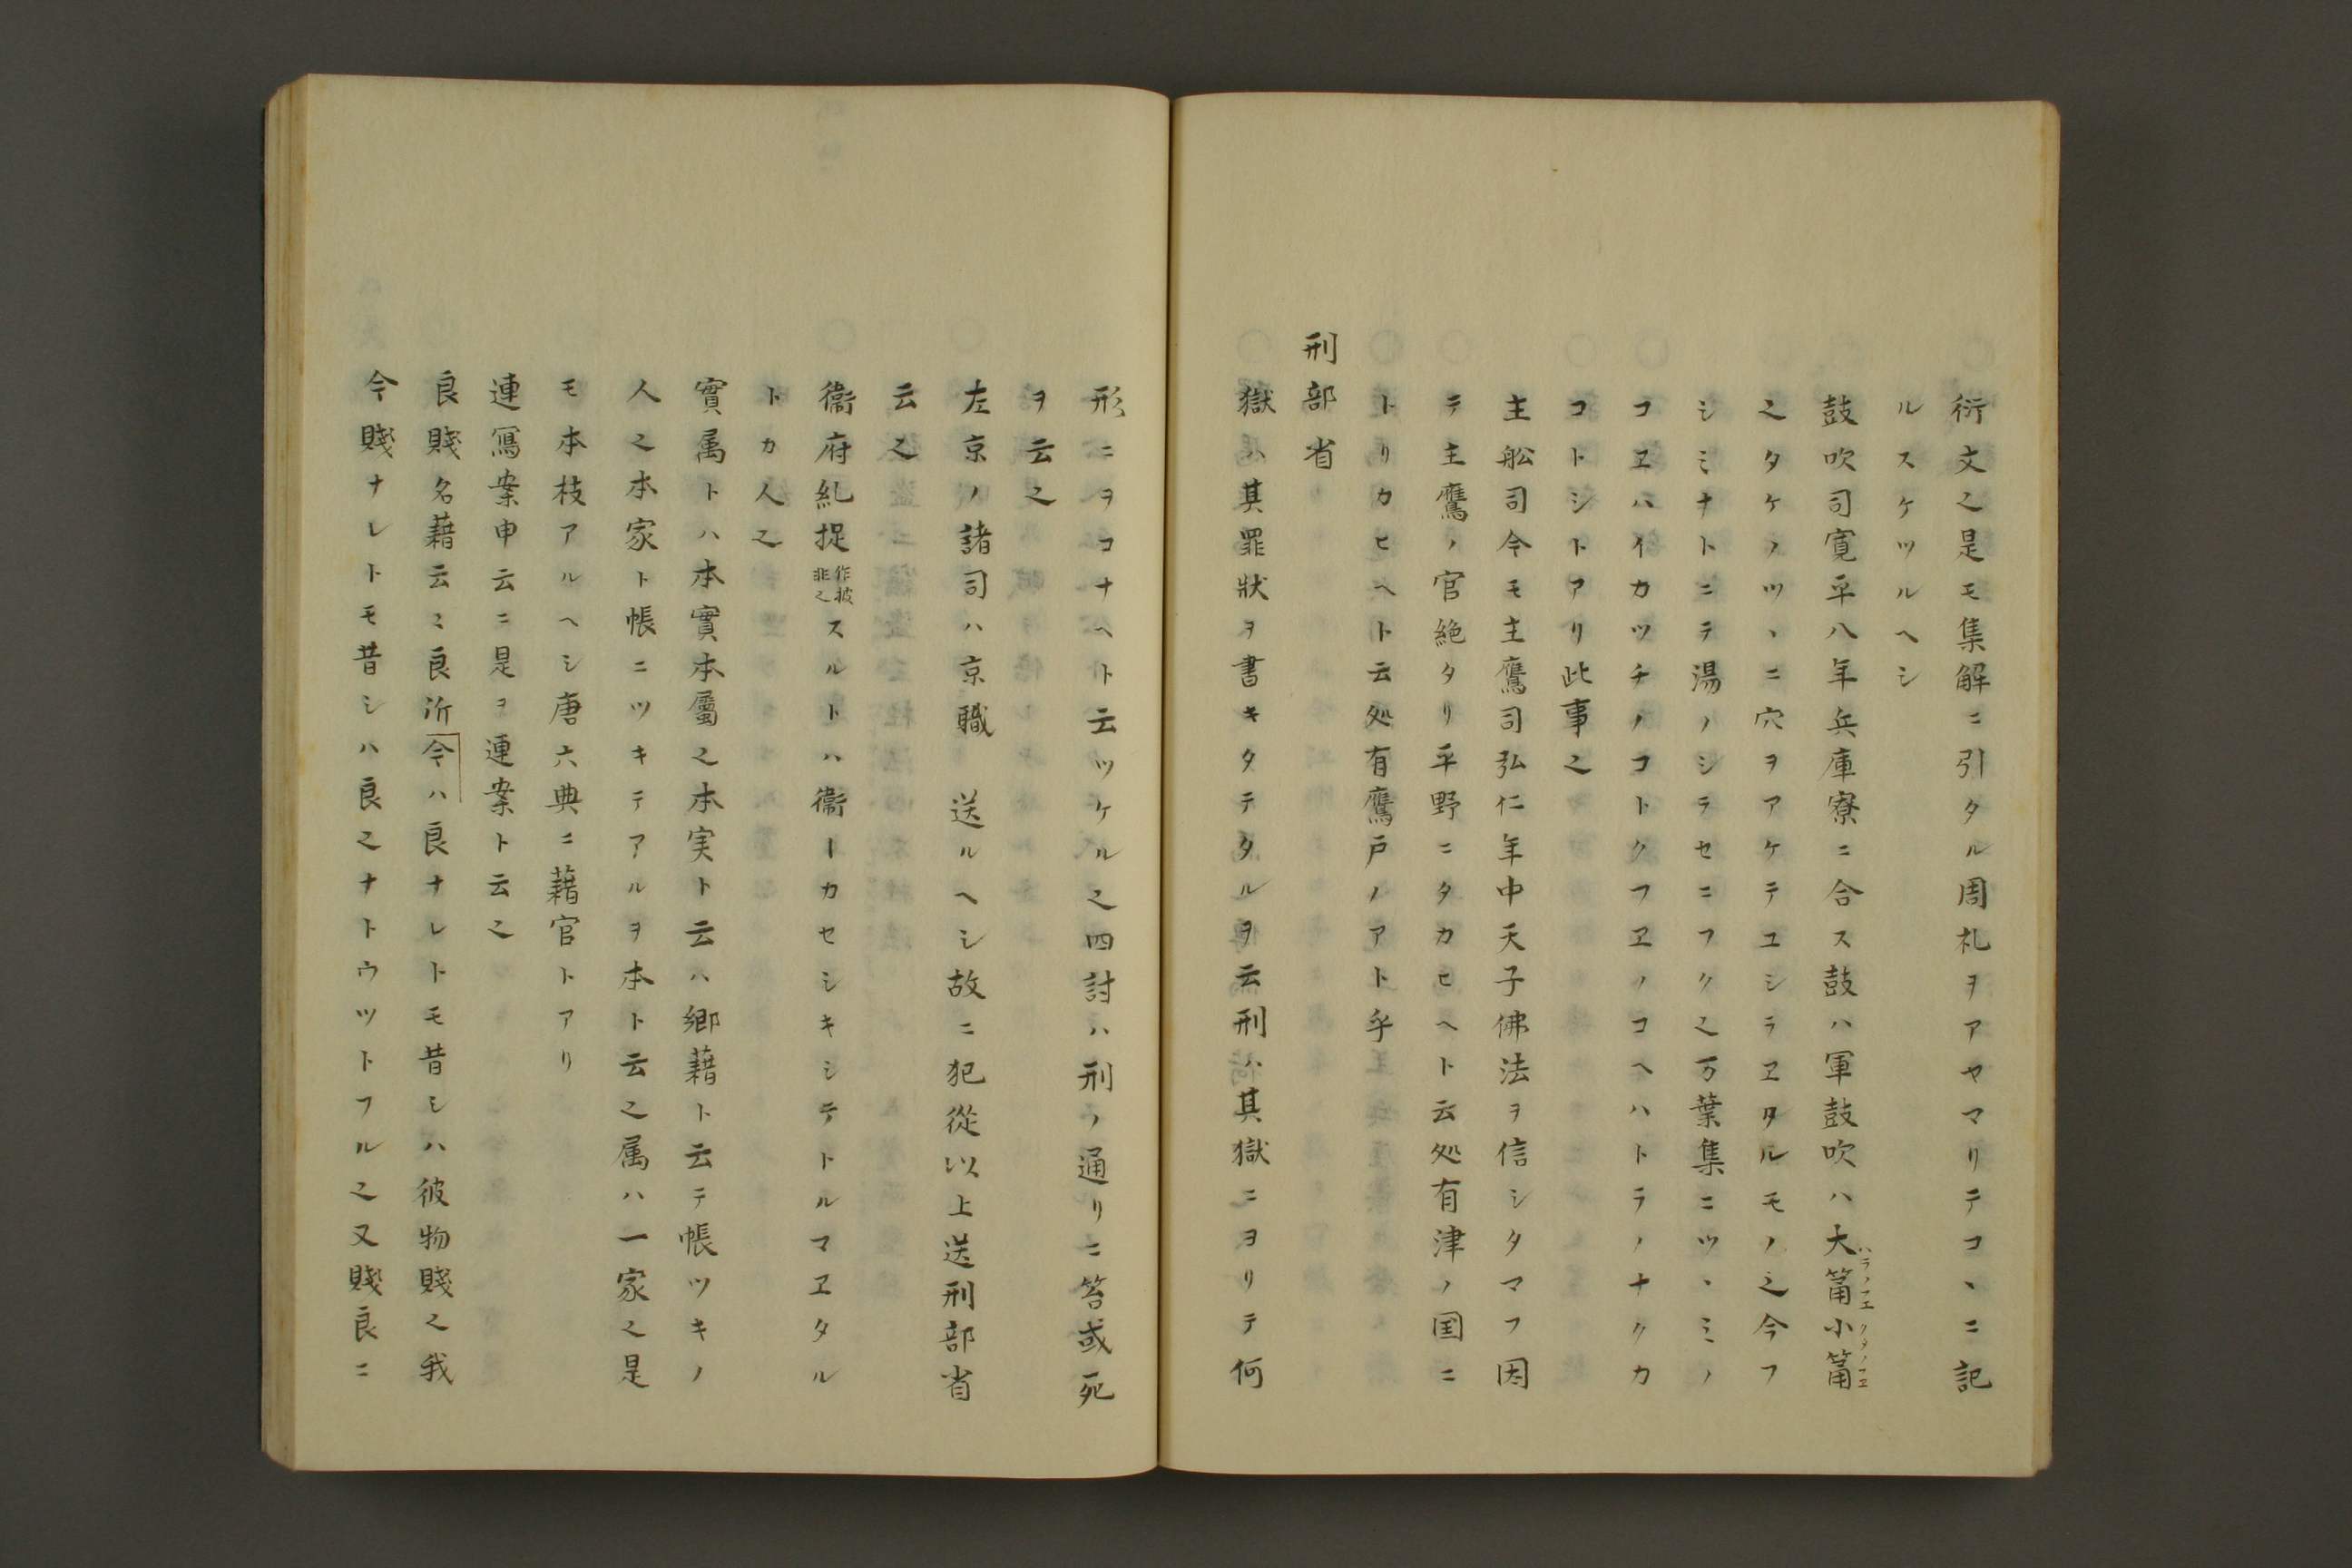 衍文之是モ集解ニ引タル周礼ヲアヤマリテコヽニ記
ルスケツルヘシ
鼓吹司寛平八年兵庫寮ニ合ス鼓ハ軍鼓吹ハ大篇ハラノフエ小篇クタノフエ
之タケノツヽニ穴ヲアケテユシラヱタルモノ之今フ
シミナトニテ湯ノシラセニフク之万葉集ニツヽミノ
コヱハイカツチノコトクフヱノコヘハトラノナクカ
コトシトアリ此事之
主舩司今モ主鷹司弘仁年中天子佛法ヲ信シタマフ因
テ主鷹ノ官絶タリ平野ニタカヒヘト云処有津ノ国ニ
トリカヒヘト云処有鷹戸ノアト乎
刑部省
獄ハ其罪狀ヲ書キタテタルヲ云刑ハ其獄ニヨリテ何
形ニヲコナヘト云ツケル之四討ハ刑ノ通リニ笞或死
ヲ云之
左京ノ諸司ハ京職 送ルヘシ故ニ犯從以上送刑部省
云之
衞府糺捉作披非之スルトハ衞ーカセシキシテトルマヱタル
トカ人之
實属トハ本實本屬之本実ト云ハ郷藉ト云テ帳ツキノ
人之本家ト帳ニツキテアルヲ本ト云之属ハ一家之是
モ本枝アルヘシ唐六典ニ藉官トアリ
連寫案申云ニ是ヲ連案ト云之
良賤名藉云ミ良所今ハ良ナレトモ昔シハ彼物賤之我
今賤ナレトモ昔シハ良之ナトウツトフル之又賤良ニ